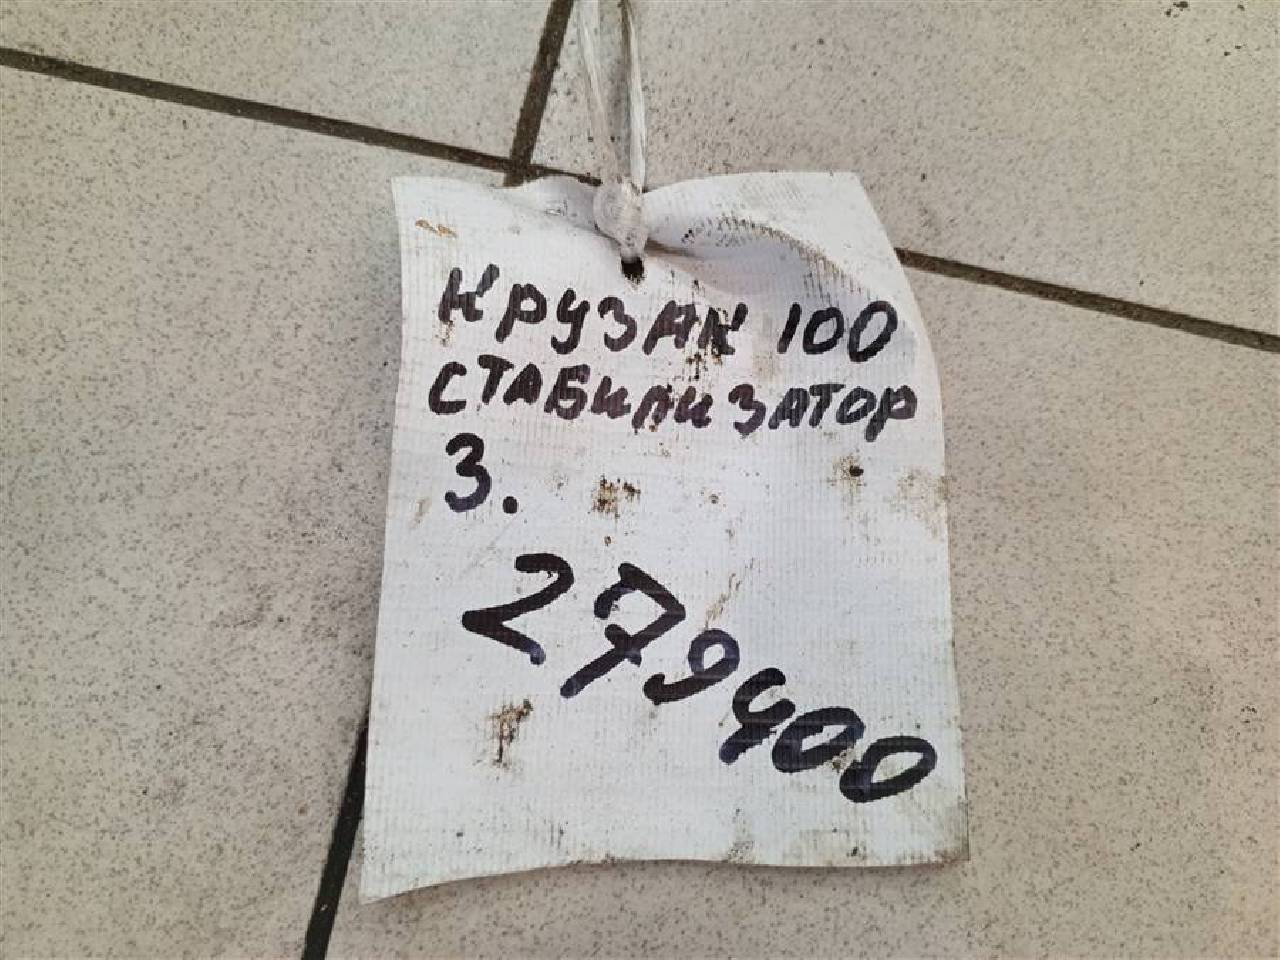 КРУЗАК 100
СТАБИЛИЗАТОР
З.
279400